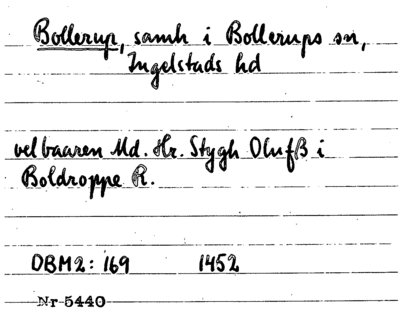 Bollerup, samh i Bollerups sn,
Ingelstads hd
velbaaren Md. Hr. Stygh Olufß i
Boldroppe R.
DBM2: 169 1452
Nr 5440